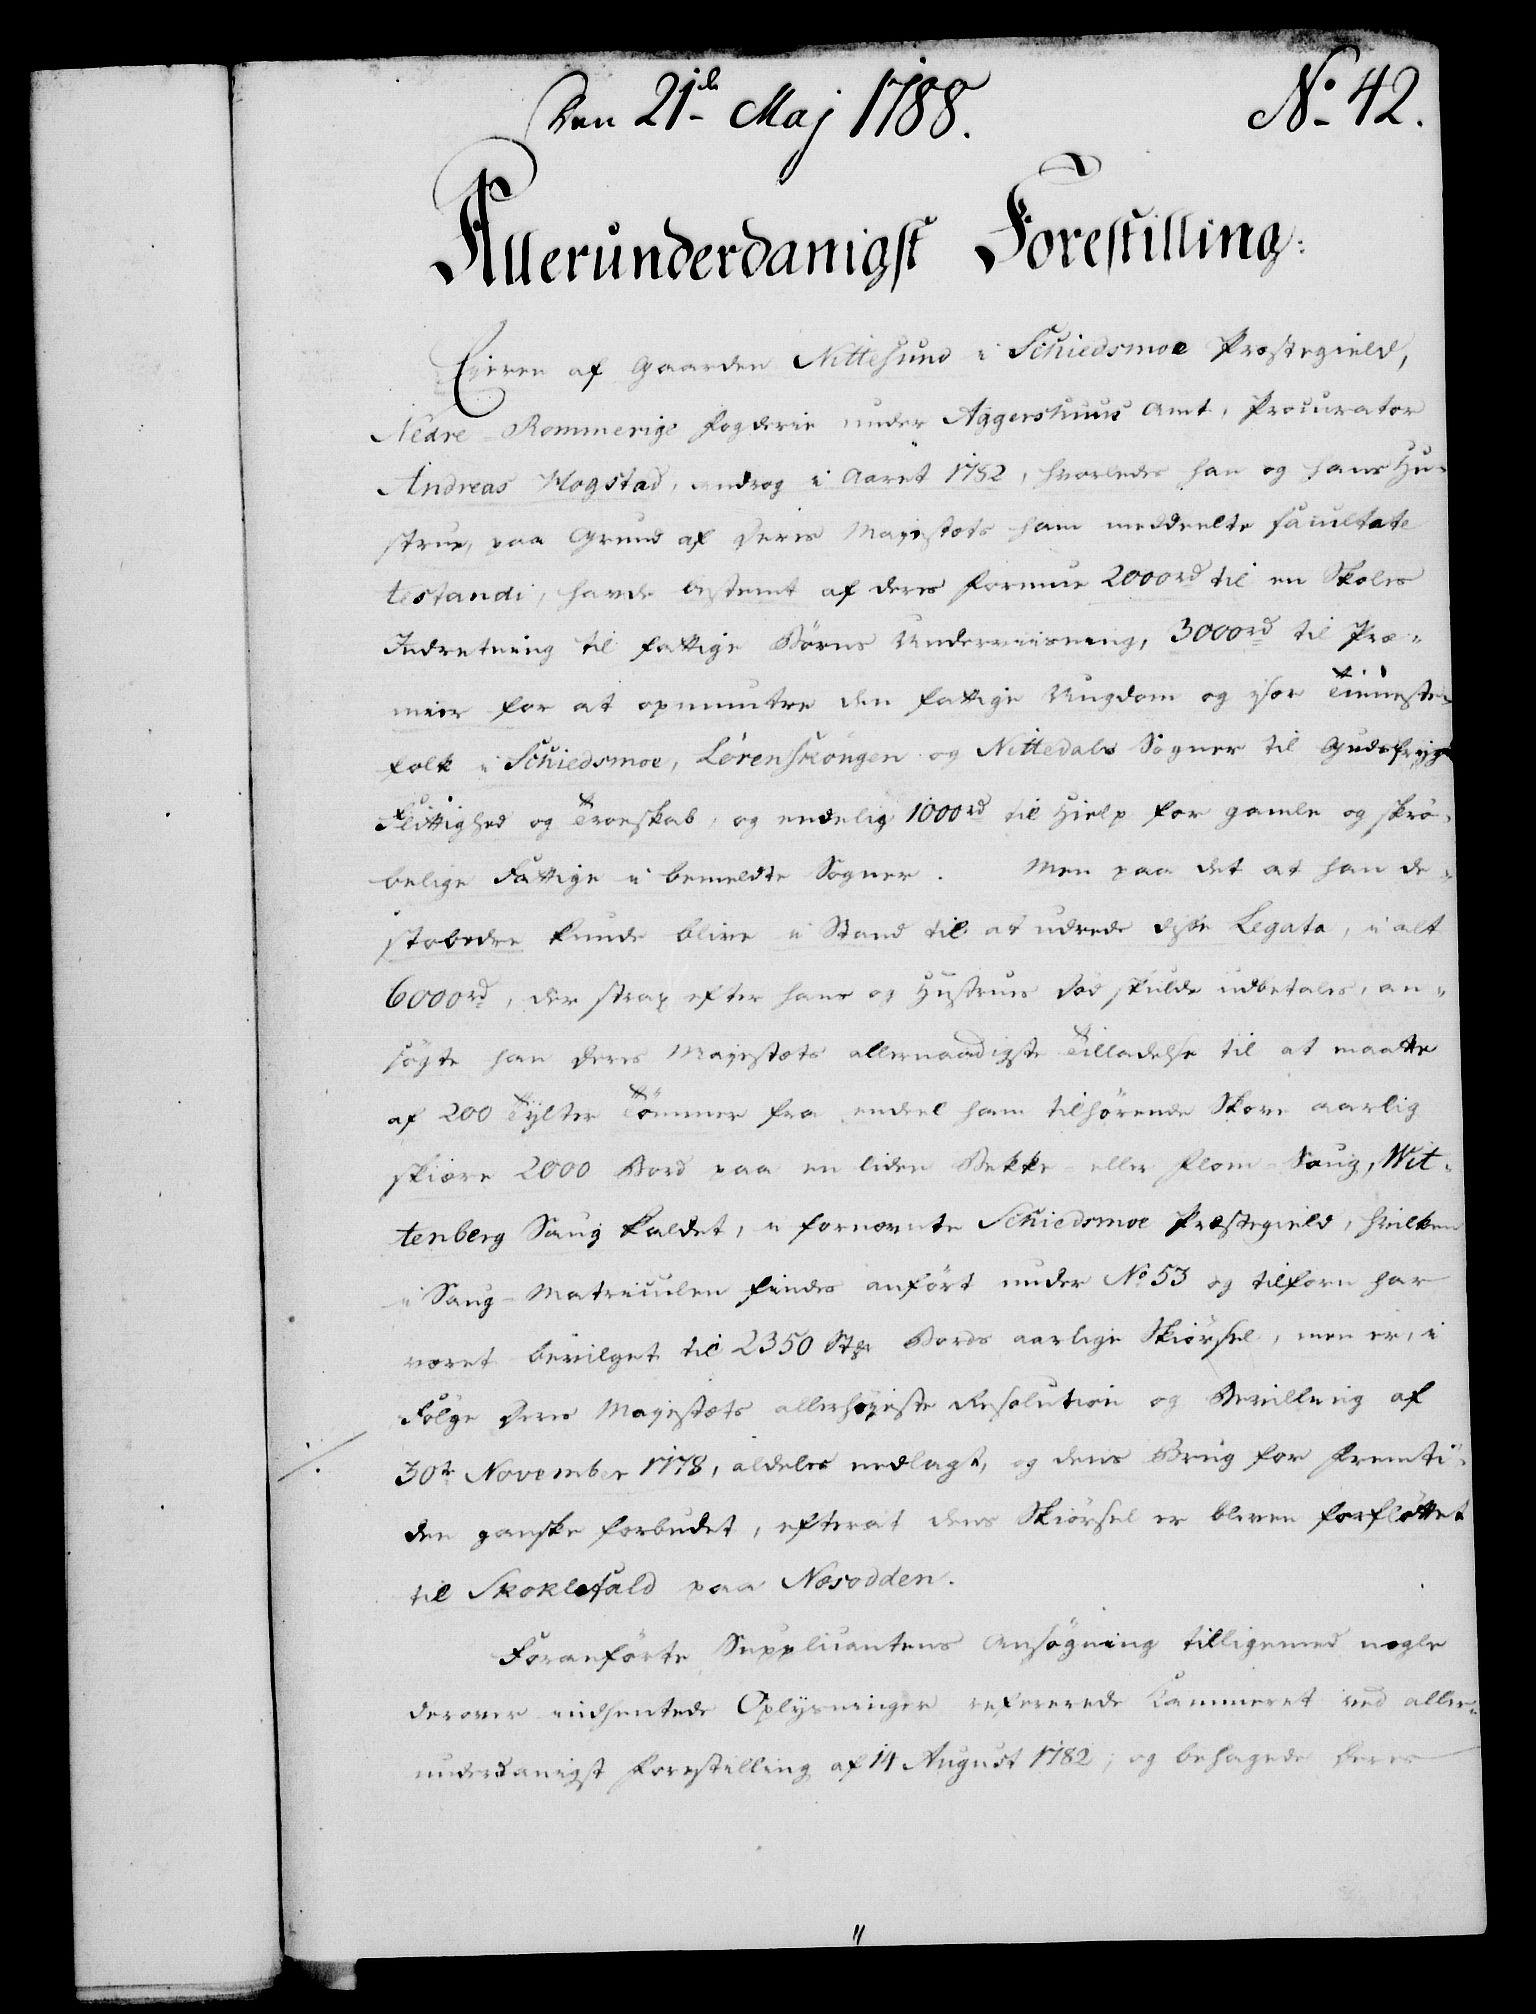 Den 21de Maj 1788.
No. 42.
Allerunderdanigst Forestilling:
Ejeren af Gaarden Nittesund i Schiedsmoe Præstegield,
Nedre-Rommerige Fogderie under Aggershuus Amt, Procurator
Andreas Hogstad, androg i Aaret 1782, hvorledes han og hans Hu-
strue, paa Grund af Deres Majestæts ham meddeelte facultate
testandi, havde bestemt af deres Formue 2000 rd til en Skoles
Indretning til fattige Börns Underviisning, 3000 rd til Præ-
mier for at opmuntre den fattige Ungdom og især Tieneste-
folk i Schiedsmoe, Lörenskougen og Nittedals Sogner til Gudsfrygt
Flittighed og Troeskab, og endelig 1000 rd til Hielp for gamle og skrö-
belige Fattige i bemeldte Sogner. Men paa det at han de-
stobedre kunde blive i Stand til at udrede disse Legata, i alt
6000 rd, der strax efter hans og Hustrues Död skulde udbetales, an-
sögte han Deres Majestæts allernaadigste Tilladelse til at maatte
af 200 Tylter Tömmer fra endeel ham tilhörende Skove aarlig
skiære 2000 Bord paa en liden Bekke- eller Flom-Saug, Wit-
tenberg Saug kaldet, i fornævnte Schiedsmoe Præstegield, hvilken
i Saug-Matriculen findes anfört under No 53 og tilforn har
været bevilget til 2350 Stkr Bords aarlige Skiörsel, men er, i
Fölge Deres Majestæts allerhöyeste Resolution og Bevilling af
30te November 1778, aldeles nedlagt, og dens Brug for Fremti-
den ganske forbudet, efterat dens Skiörsel er bleven forflöttet
til Skoklefald paa Næsodden.
Foranförte Supplicantens Ansögning tilligemed nogle
derover indhentede Oplysninger refererede Kammeret ved aller-
underdanigst Forestilling af 14 August 1782; og behagede Deres